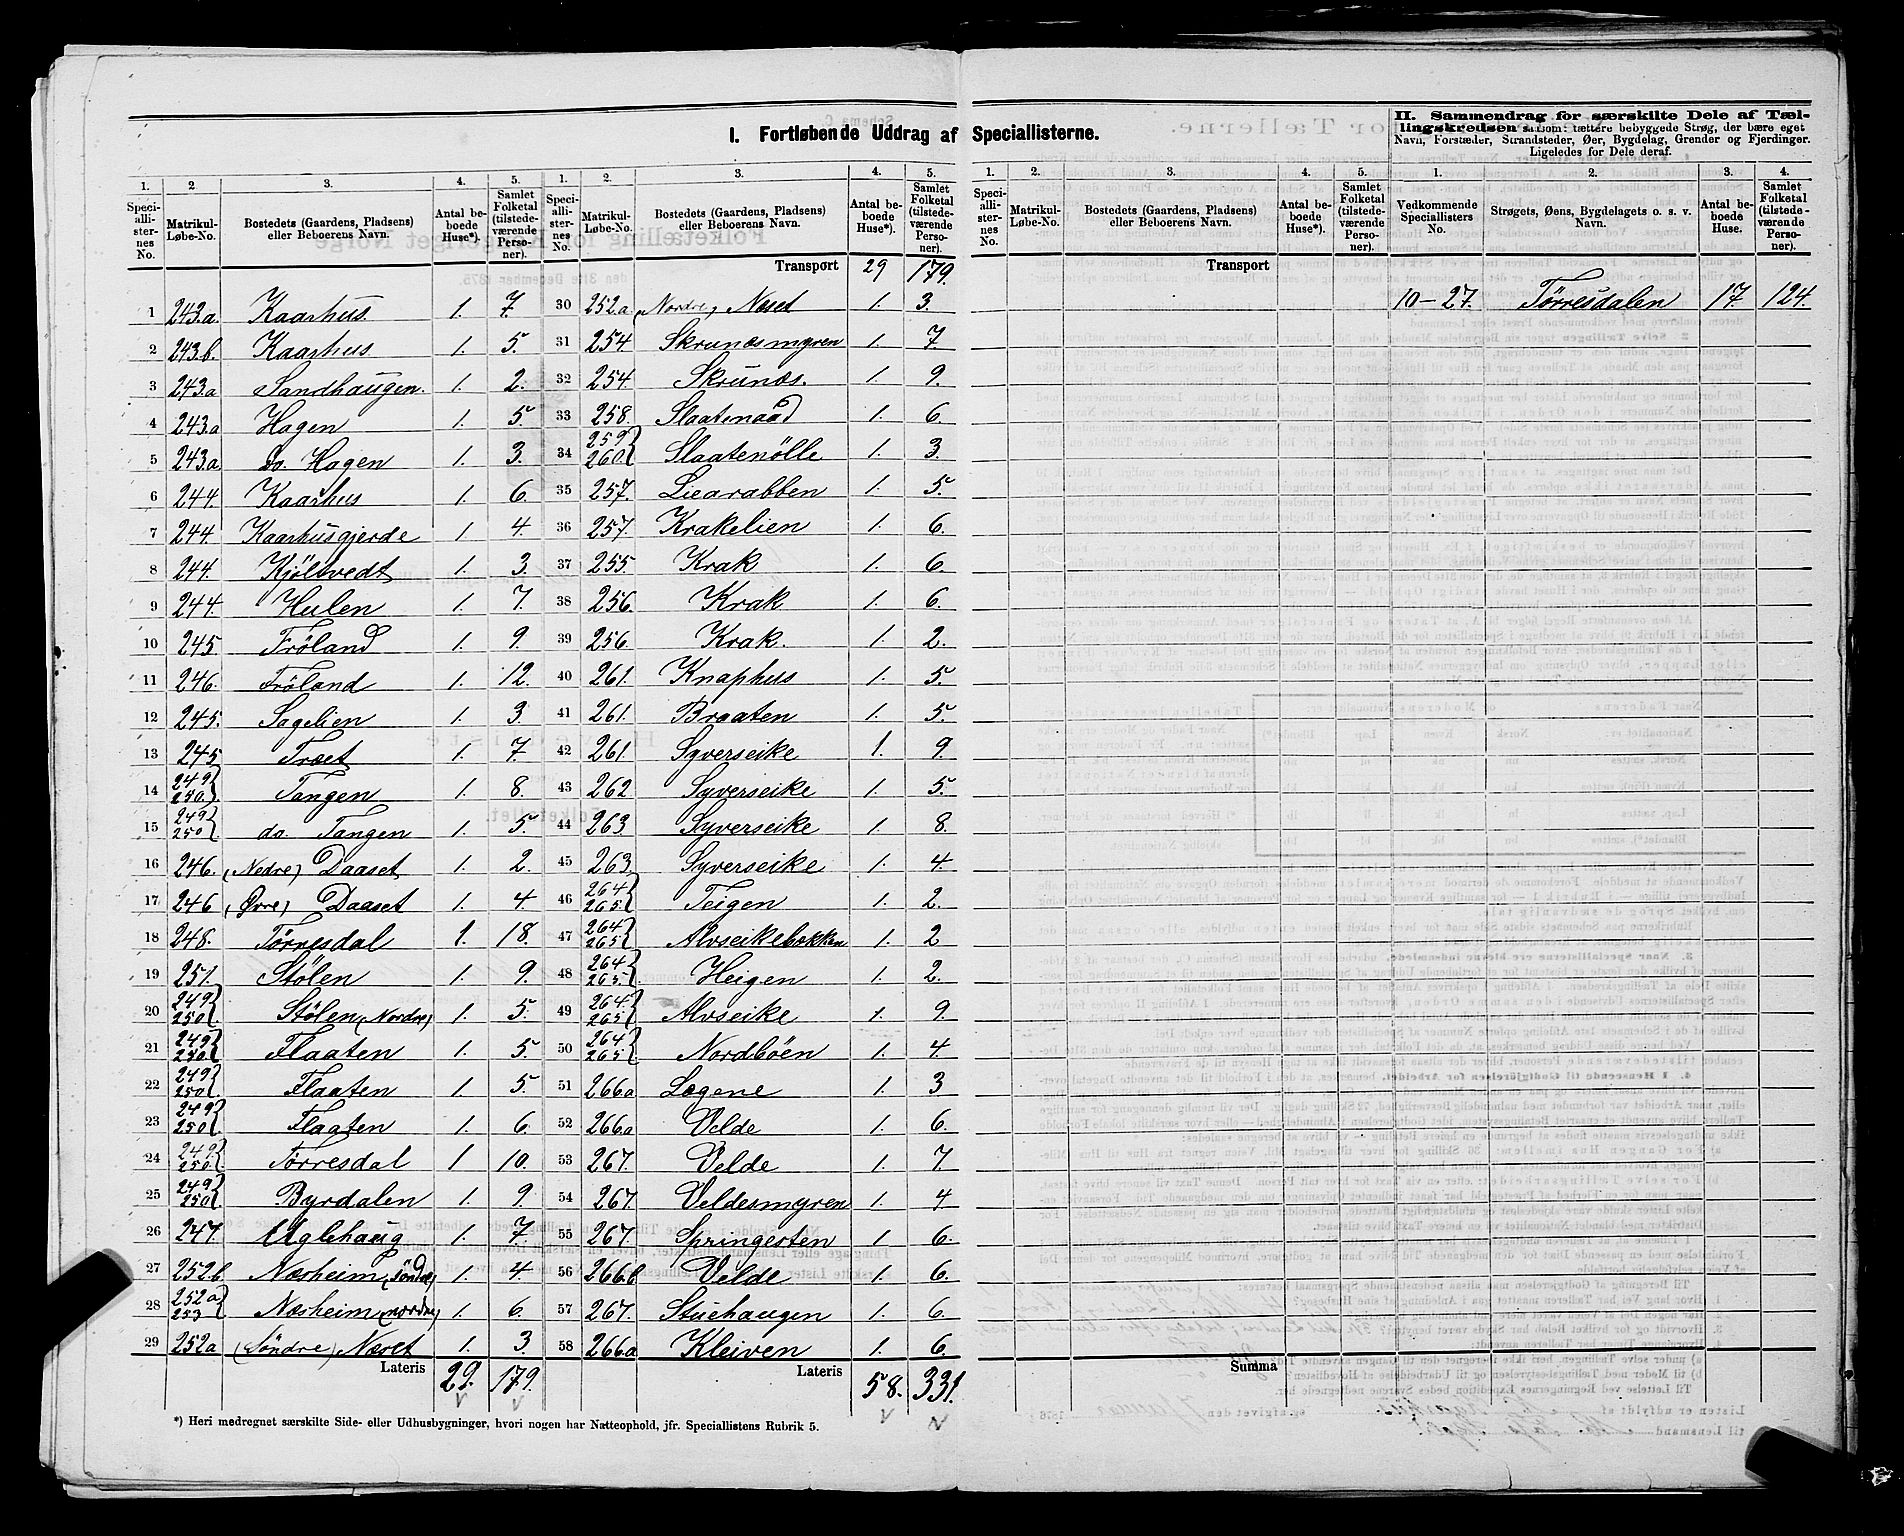 I. Fortløbende Uddrag af Speciallisterne.
II. Sammendrag for særskilte Dele af Tæl-
lingskredsen saasom: tættere bebyggede Strøg, der bære eget
Navn, Forstæder, Strandsteder, Øer, Bygdelag, Grender og Fjerdinger.
Ligeledes for Dele deraf.
1. 2. 3. 4. 5. 1. 2. 3. 4. 5. 1. 2. 3. 4. 5. 1. 2. 3. 4.
Speci-allister-nes No. Matrikul-Løbe-No. Bostedets (Gaardens, Pladsens) eller Beboerens Navn. Antal be-boede Huse*). Samlet Folketal (tilstede-værende Perso-ner).
Speci-allister-nes No. Matrikul-Løbe-No. Bostedets (Gaardens, Pladsens) eller Beboerens Navn. Antal be-boede Huse*). Samlet Folketal (tilstede-værende Perso-ner).
Speci-allister-nes No. Matrikul-Løbe-No. Bostedets (Gaardens, Pladsens) eller Beboerens Navn. Antal be-boede Huse*). Samlet Folketal (tilstede-værende Perso-ner).
Vedkommende Speciallisters No. Strøgets, Øens, Bygdelagets o. s. v. Navn. Antal be-boede Huse. Samlet Folketal (tilstede-værende Perso-ner).
1 243.a. Kaarhus. 1. 7.
2 243.b. Kaarhus. 1. 5.
3 243.a Sandhaugen. 1. 2.
4 243.a Hagen 1. 5.
5 243.a Do. Hagen 1. 3.
6 244. Kaarhus 1. 6.
7 244. Kaarhusgjerde 1 4.
8 244. Kjölsvedt 1. 3.
9 244. Hulen 1. 7.
10 245 Fröland 1. 9.
11 246. Fröland 1. 12.
12 245. Sagelien 1. 3.
13 245 Træet 1. 7.
14 249 250. Tangen 1. 8.
15 249 250 do. Tangen 1. 5.
16 246. (Nedre) Daaset 1. 2.
17 246 (Øvre) Daaset 1. 4
18 248. Törresdal 1. 18.
19 251. Stölen 1. 9.
20 249 250 Stölen (Nordre) 1. 5.
21 249 250. Flaaten 1. 5.
22 249 250 Flaaten 1. 5.
23 249 250 Flaaten 1. 6.
24 249. 250. Törresdal 1 10.
25 249 250 Byrdalen 1. 9
26 247. Uglehaug 1. 7
27 252.b Næsheim (Söndre) 1. 4.
28 252a 253 Næsheim (nordre) 1. 6.
29 252a (Söndre) Næset 1. 3.
Lateris 29. 179.
Transport 29 179.
30 252a (Nordre) Næset 1. 3.
31 254 Skrunæsmyren 1. 7.
32 254. Skrunæs. 1. 9.
33 258. Slaatenaad 1. 6.
34 259 260 Slaatenölle 1. 3.
35 257. Liearabben 1. 5.
36 257. Krakelien 1. 6.
37 255. Krak 1. 6.
38 256. Krak 1. 6.
39 256. Krak. 1. 2.
40 261. Knaphus 1. 5.
41 261. Braaten 1. 5.
42 261. Syverseike 1. 9.
43 262 Syverseike 1. 5.
44 263 Syverseike 1. 8.
45 263. Syverseike 1. 4.
46 264 265. Teigen 1. 2.
47 264 265 Alvseikebakken 1. 2
48 264 265. Heigen 1. 2.
49 264. 265 Alvseike 1. 9.
50 264 265 Nordböen 1. 4
51 266a Lægene 1. 3
52 266a Velde 1. 6.
53 267. Velde 1. 7
54 267. Veldesmyren 1. 4
55 267. Springesten 1. 6.
56 266.b Velde 1. 6.
57 267. Stuehaugen 1. 6.
58 266a Kleiven 1. 6.
Lateris 58. 331.
Transport
Summa
10-27. Törresdalen 17 124.
*) Heri medregnet særskilte Side- eller Udhusbygninger, hvori nogen har Natteophold, jfr. Speciallistens Rubrik 5.